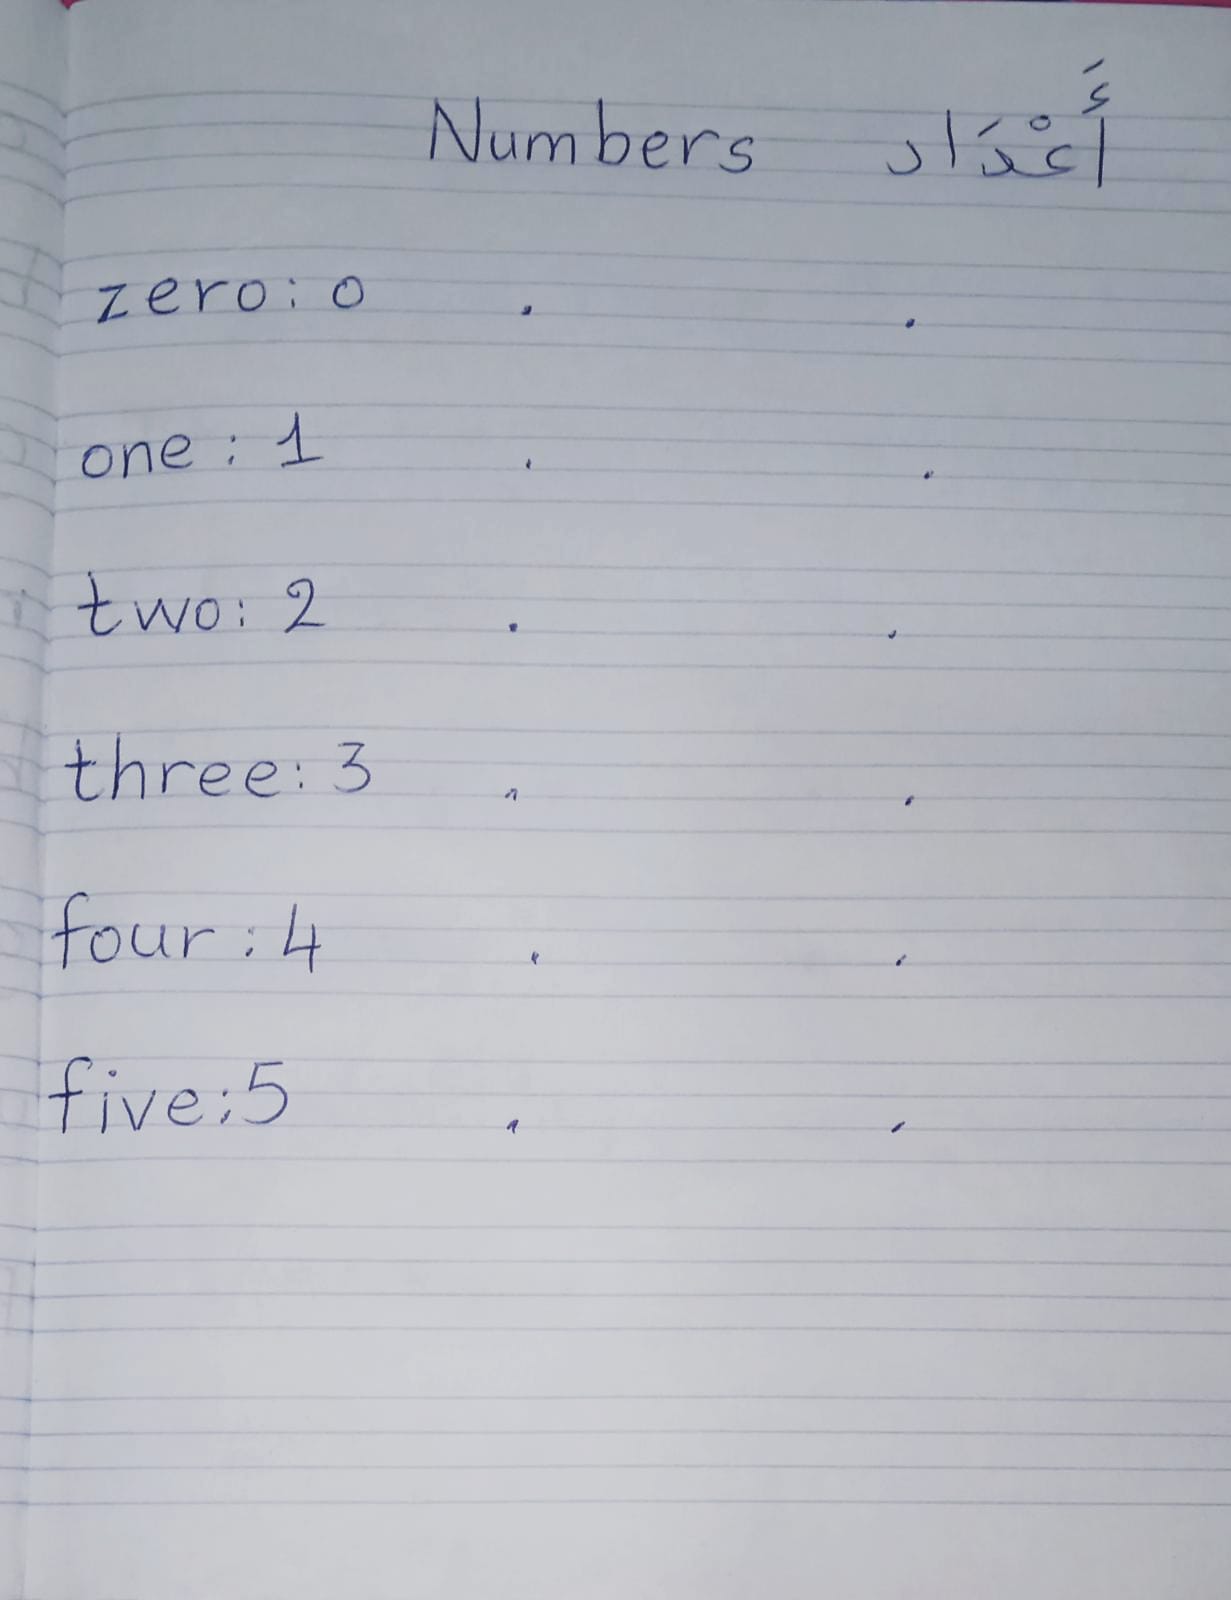 Numbers أَعْدَاد
zero: 0 . .
one: 1 . .
two: 2 . .
three: 3 . .
four: 4 . .
five: 5 . .